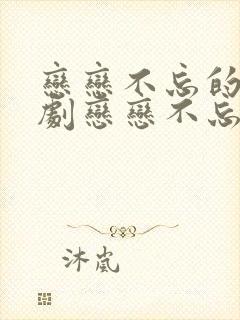 戀戀不忘的
劇戀戀不忘
沐嵐